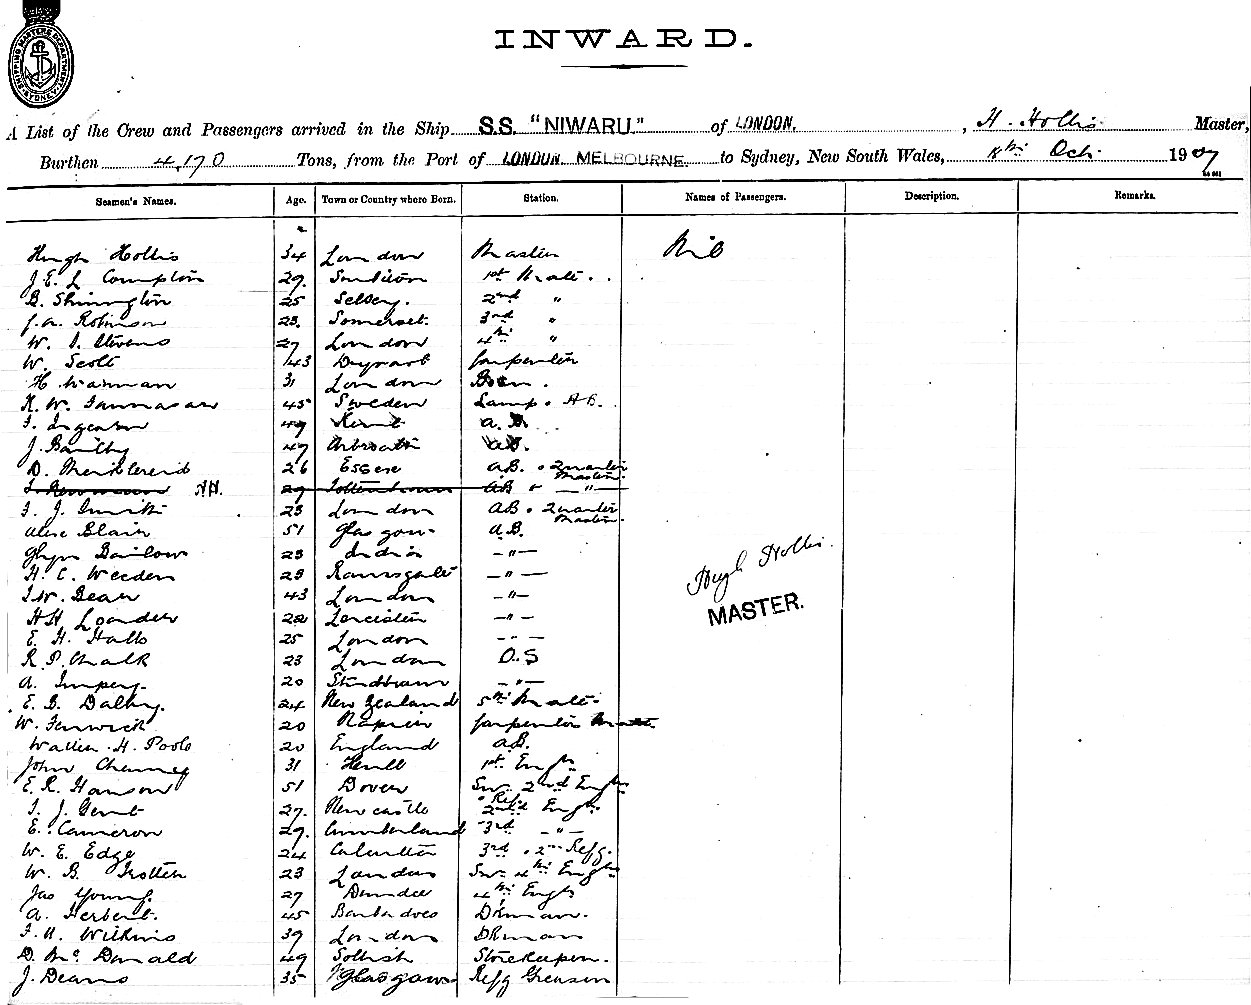 SHIPPING MASTERS DEPARTMENT SYDNEY
INWARD.
A List of the Crew and Passengers arrived in the Ship S.S. "NIWARU" of LONDON, H. Hollis Master,
Burthen 4,170 Tons, from the Port of LONDON. MELBOURNE. to Sydney, New South Wales, 8th Oct. 1907
Seamen's Names. Age. Town or Country where Born. Station. Names of Passengers. Description. Remarks.
Hugh Hollis 34 London Master Nil
J. E. L Compton 29. 1st Mate.
B. Shinington 25 Selsey. 2nd "
J. A. Robinson 23. Somerset. 3rd "
W. Stevens 27 London 4th "
W. Scott 43 Carpenter
H. Warman 31 London Bosn.
K. W. 45 Sweden Lamps. AB.
49 Kent A.B.
J. 47 Arbroath AB.
D. 26 Essex AB. & Quarter Master.
29 Tottenham AB & — " —
J. Smith 23 London AB & Quarter Master.
Alex Blair 51 Glasgow A.B.
Glyn Barlow 23 India — " —
H. C. Weeden 23 Ramsgate — " —
Bear 43 London — " —
22 Leicester — " —
E. H. Halls 25 London — " —
R. P. Chalk 23 London O.S
A. Impey. 20 — " —
E. B. Dalby. 24 New Zealand 5th Mate.
W. Fenwick 20 Napier Carpenter Mate
Walter H. Poole 20 England A.B.
John 31 Hull 1st Engr
E. R. Hanson 51 Dover Snr. 2nd Engr
J. J. 27. Newcastle 2nd & Refg Engr
E. Cameron 29. Cumberland 3rd — " —
W. E. Edge 24 Calcutta 3rd & 2nd Refg.
W. B. Trotter 23 London Snr 4th Engr
Jas Young. 27 Dundee 4th Engr
A. Herbert. 45 Barbadoes Dkman.
Wilkins 39 London Dkman
D. McDonald 49 Storekeeper.
J. Deans 35 Glasgow Refg Greaser
Hugh Hollis.
MASTER.